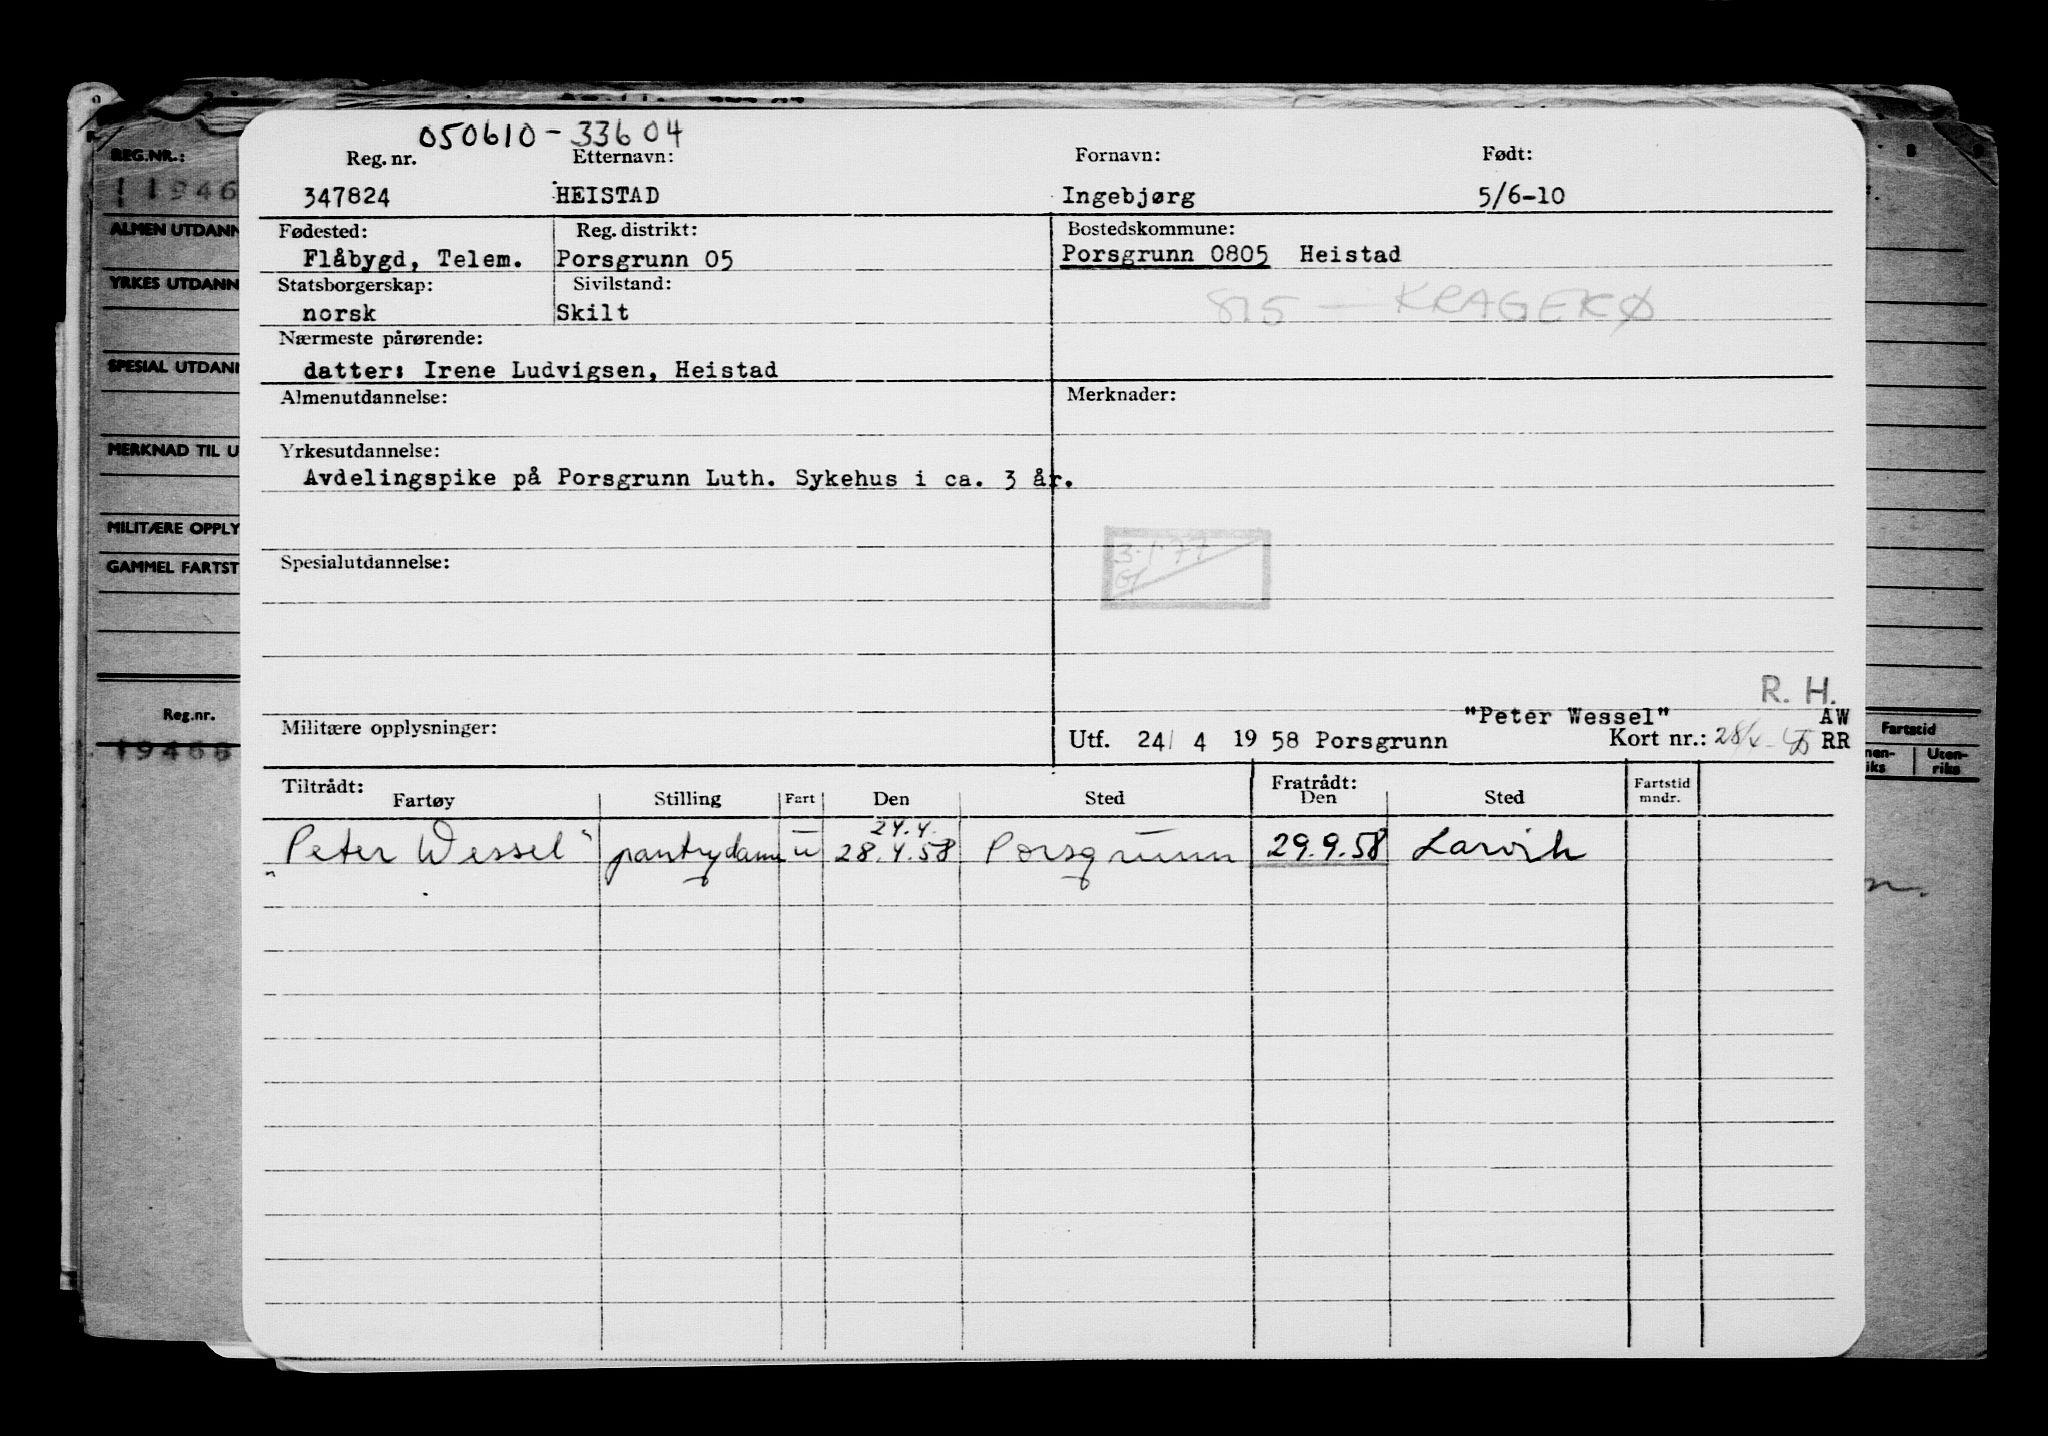 050610-33604
Reg. nr. Etternavn: Fornavn: Født:
347824 HEISTAD Ingebjørg 5/6-10
Fødested: Reg. distrikt: Bostedskommune:
Flåbygd, Telem. Porsgrunn 05 Porsgrunn 0805 Heistad
Statsborgerskap: Sivilstand:
norsk Skilt
815 - KRAGERØ
Nærmeste pårørende:
datter: Irene Ludvigsen, Heistad
Almenutdannelse: Merknader:
Yrkesutdannelse:
Avdelingspike på Porsgrunn Luth. Sykehus i ca. 3 år.
3.1.77
Spesialutdannelse:
R. H.
"Peter Wessel" AW
Militære opplysninger: Utf. 24/ 4 19 58 Porsgrunn Kort nr.: RR
Tiltrådt: Fratrådt: Fartstid
Fartøy Stilling Fart Den Sted Den Sted mndr.
24.4.
"Peter Wessel" pantrydame u 28.4.58 Porsgrunn 29.9.58 Larvik
REG.NR.:
11946
ALMEN UTDANN
YRKES UTDANN
SPESIAL UTDANN
MERKNAD TIL U
MILITÆRE OPPLY
GAMMEL FARTST
Reg.nr.
19466
Fartstid
nen-
riks
Uten-
riks